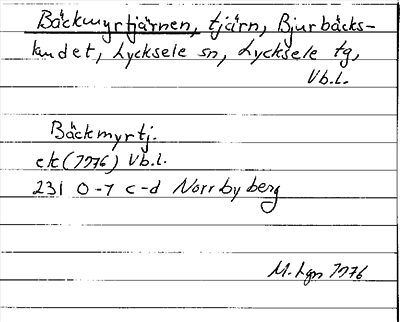 Bäckmyrtjärnen, tjärn, Bjurbäcks-
landet, Lycksele sn, Lycksele tg,
Vb.l.
Bäckmyrtj.
ek (1976) Vb.l.
231 0-7 c-d Norrbyberg
M. Lgn 1976